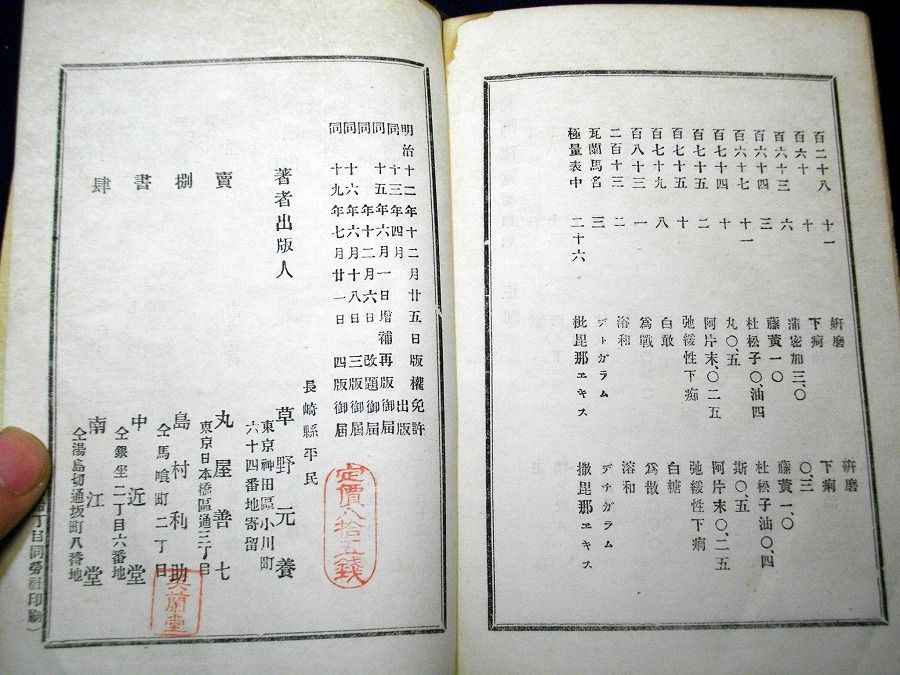 百二十八 十一 姸磨 硏磨
百六十 十 下痾 下痢
百六十三 六 蒲密加三、〇 〇、三
百六十四 三 藤黃一〇 藤黃一、〇
百六十七 十一 杜松子〇、油四 杜松子油〇、四
百七十四 十 丸〇、五 斯〇、五
百七十五 二 阿片末、〇二五 阿片末〇、二五
百七十五 十 弛緩性下痴 弛緩性下痢
百七十九 八 白敢 白糖
百八十三 一 爲戰 爲散
二百十三 二 浴和 溶和
瓦蘭馬名 三 デトガラム デチガラム
極量表中 二十六 批毘那ヱキス 撒毘那ヱキス
明治十二年十二月廿五日版權免許
同十三年四月 出版
同十五年六月一日增補再版御屆
同 年十二月六日 改題御屆
同十六年六月十八日 三版御屆
同十九年七月廿一日 四版御屆
長崎縣平民
著者出版人 草野元養
東京神田區小川町
六十四番地寄留
定價八拾五錢
賣捌書肆
丸屋善七
東京日本橋區通三丁目
島村利助
仝馬喰町二丁目
中近堂
仝銀坐二丁目六番地
南江堂
仝湯島切通坂町八番地
英蘭堂
丁目同勞社印刷）